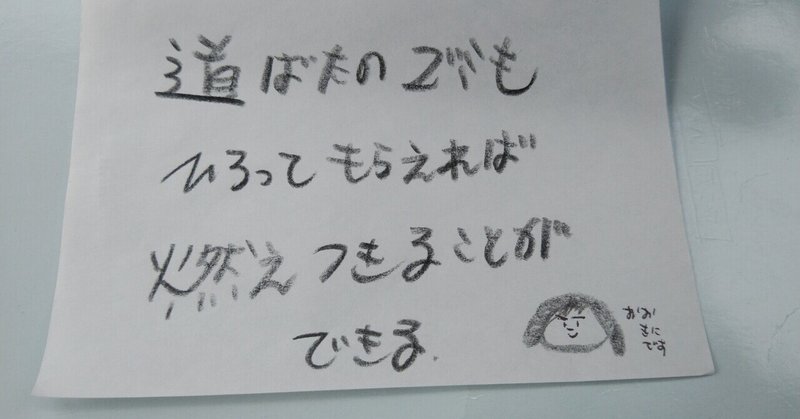 道ばたのゴミも
ひろってもらえれば
燃えつきることが
できる.
おお
もに
です